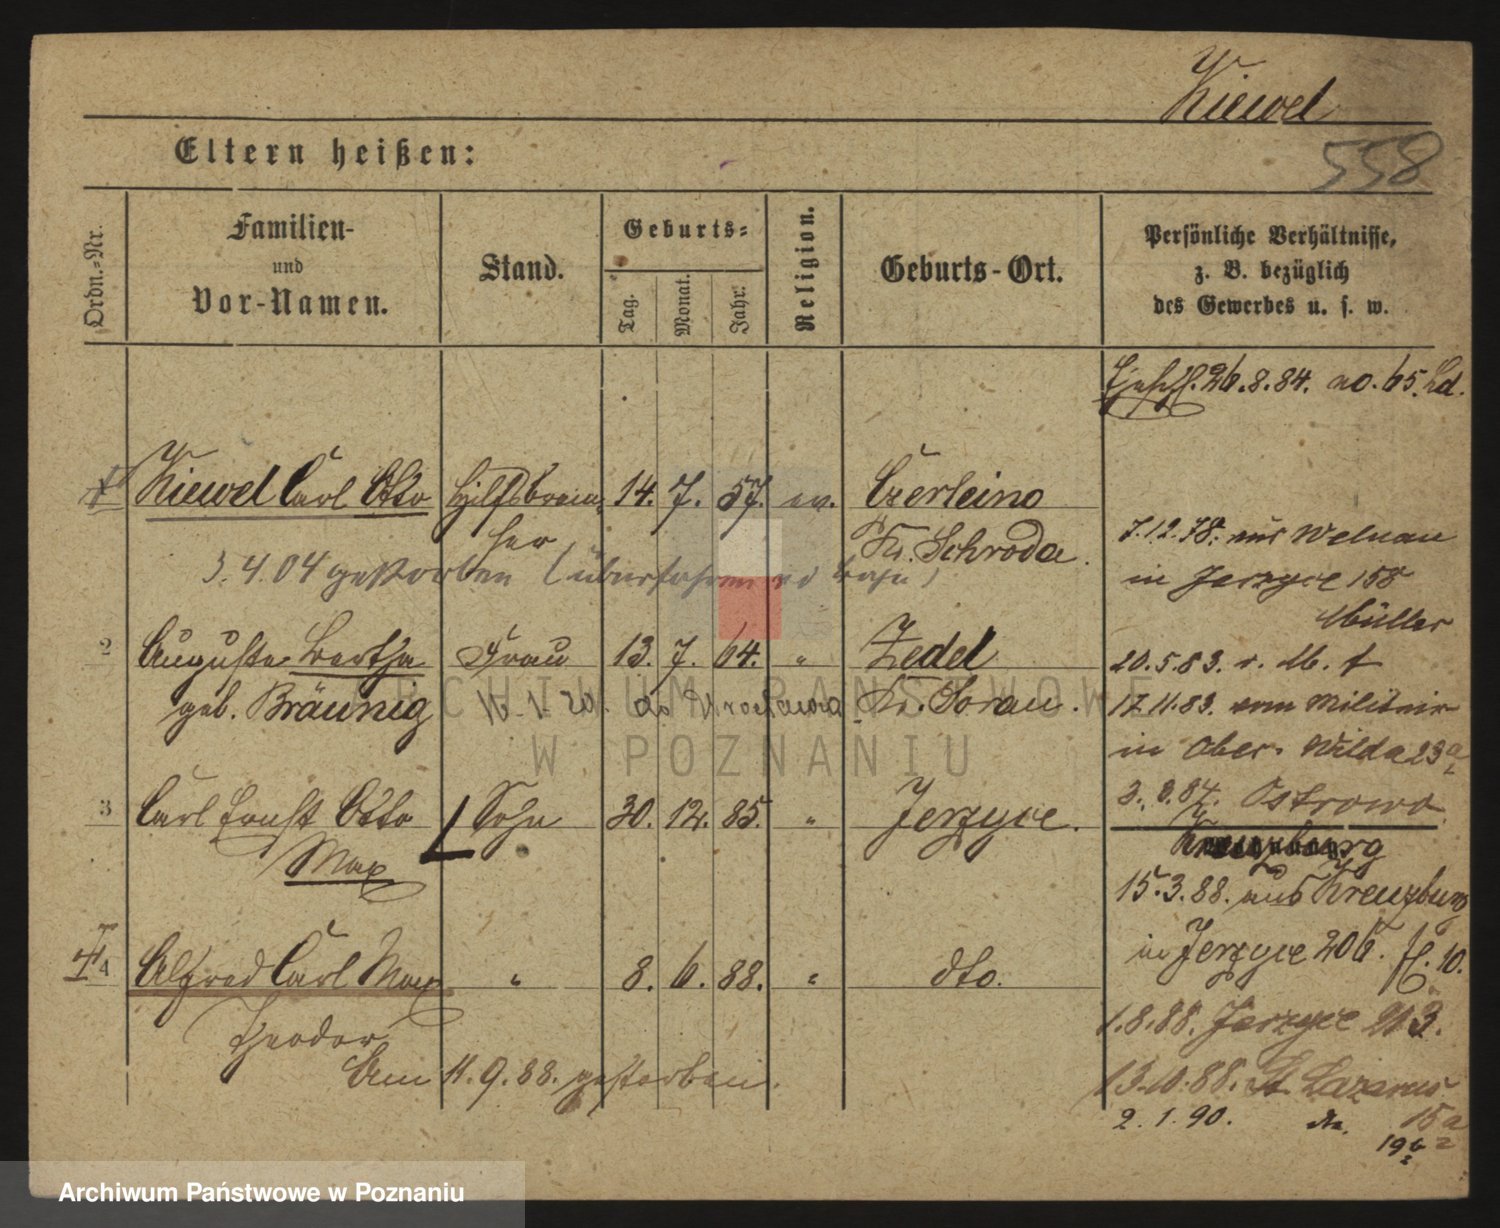 Kiewel
558
Eltern heißen:
Ordn.-Nr.
Familien-
und
Vor-Namen.
Stand.
Geburts-
Tag.
Monat.
Jahr.
Religion.
Geburts-Ort.
Persönliche Verhältnisse,
z. B. bezüglich
des Gewerbes u. s. w.
26.8.84. no. 65.
Kiewel Carl Otto Hilfsbrem 14. 7. 57. ev. Czerleino
ser Kr. Schroda.
3.4.04 gestorben (überfahren
7.12.78. aus Welnau
in Jerzyce 158
Müller
2 Auguste Bertha Frau 13. 7. 64. " Zedel
geb. Bräunig 16.1.20. do Wrocławia Kr. Sorau.
20.5.83. r. M. f
17.11.83. vom Militair
in Ober Wilda 23a
3 Carl Ernst Otto Sohn 30. 12. 85. " Jerzyce.
Max
3.8.84. Ostrowo
Kreuzburg
15.3.88. aus Kreuzburg
in Jerzyce 206. fl. 10.
4 Alfred Carl Max " 8. 6. 88. " dto.
Theodor
Am 11.9.88. gestorben.
1.8.88. Jerzyce 213.
13.10.88. St Lazarus
15a
2.1.90. dto. 19
ARCHIWUM PAŃSTWOWE
W POZNANIU
Archiwum Państwowe w Poznaniu